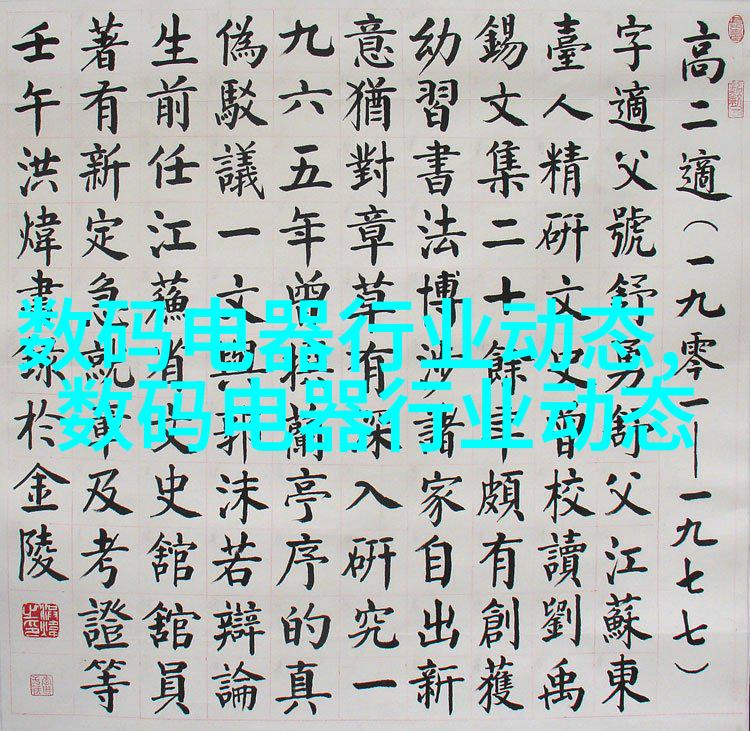 高二適(一九零一—一九七七)
字適父號舒勇舒父江蘇東
臺人精研文史曾校讀劉禹
錫文集二十餘年頗有創獲
幼習書法博涉諸家自出新
意猶對章草有深入研究一
九六五年曾撰蘭亭序的真
偽駁議一文與郭沫若辯論
生前任江蘇省文史舘舘員
著有新定急就章及考證等
壬午洪煒書錄於金陵
数码电器行业动态,
数码电器行业动态